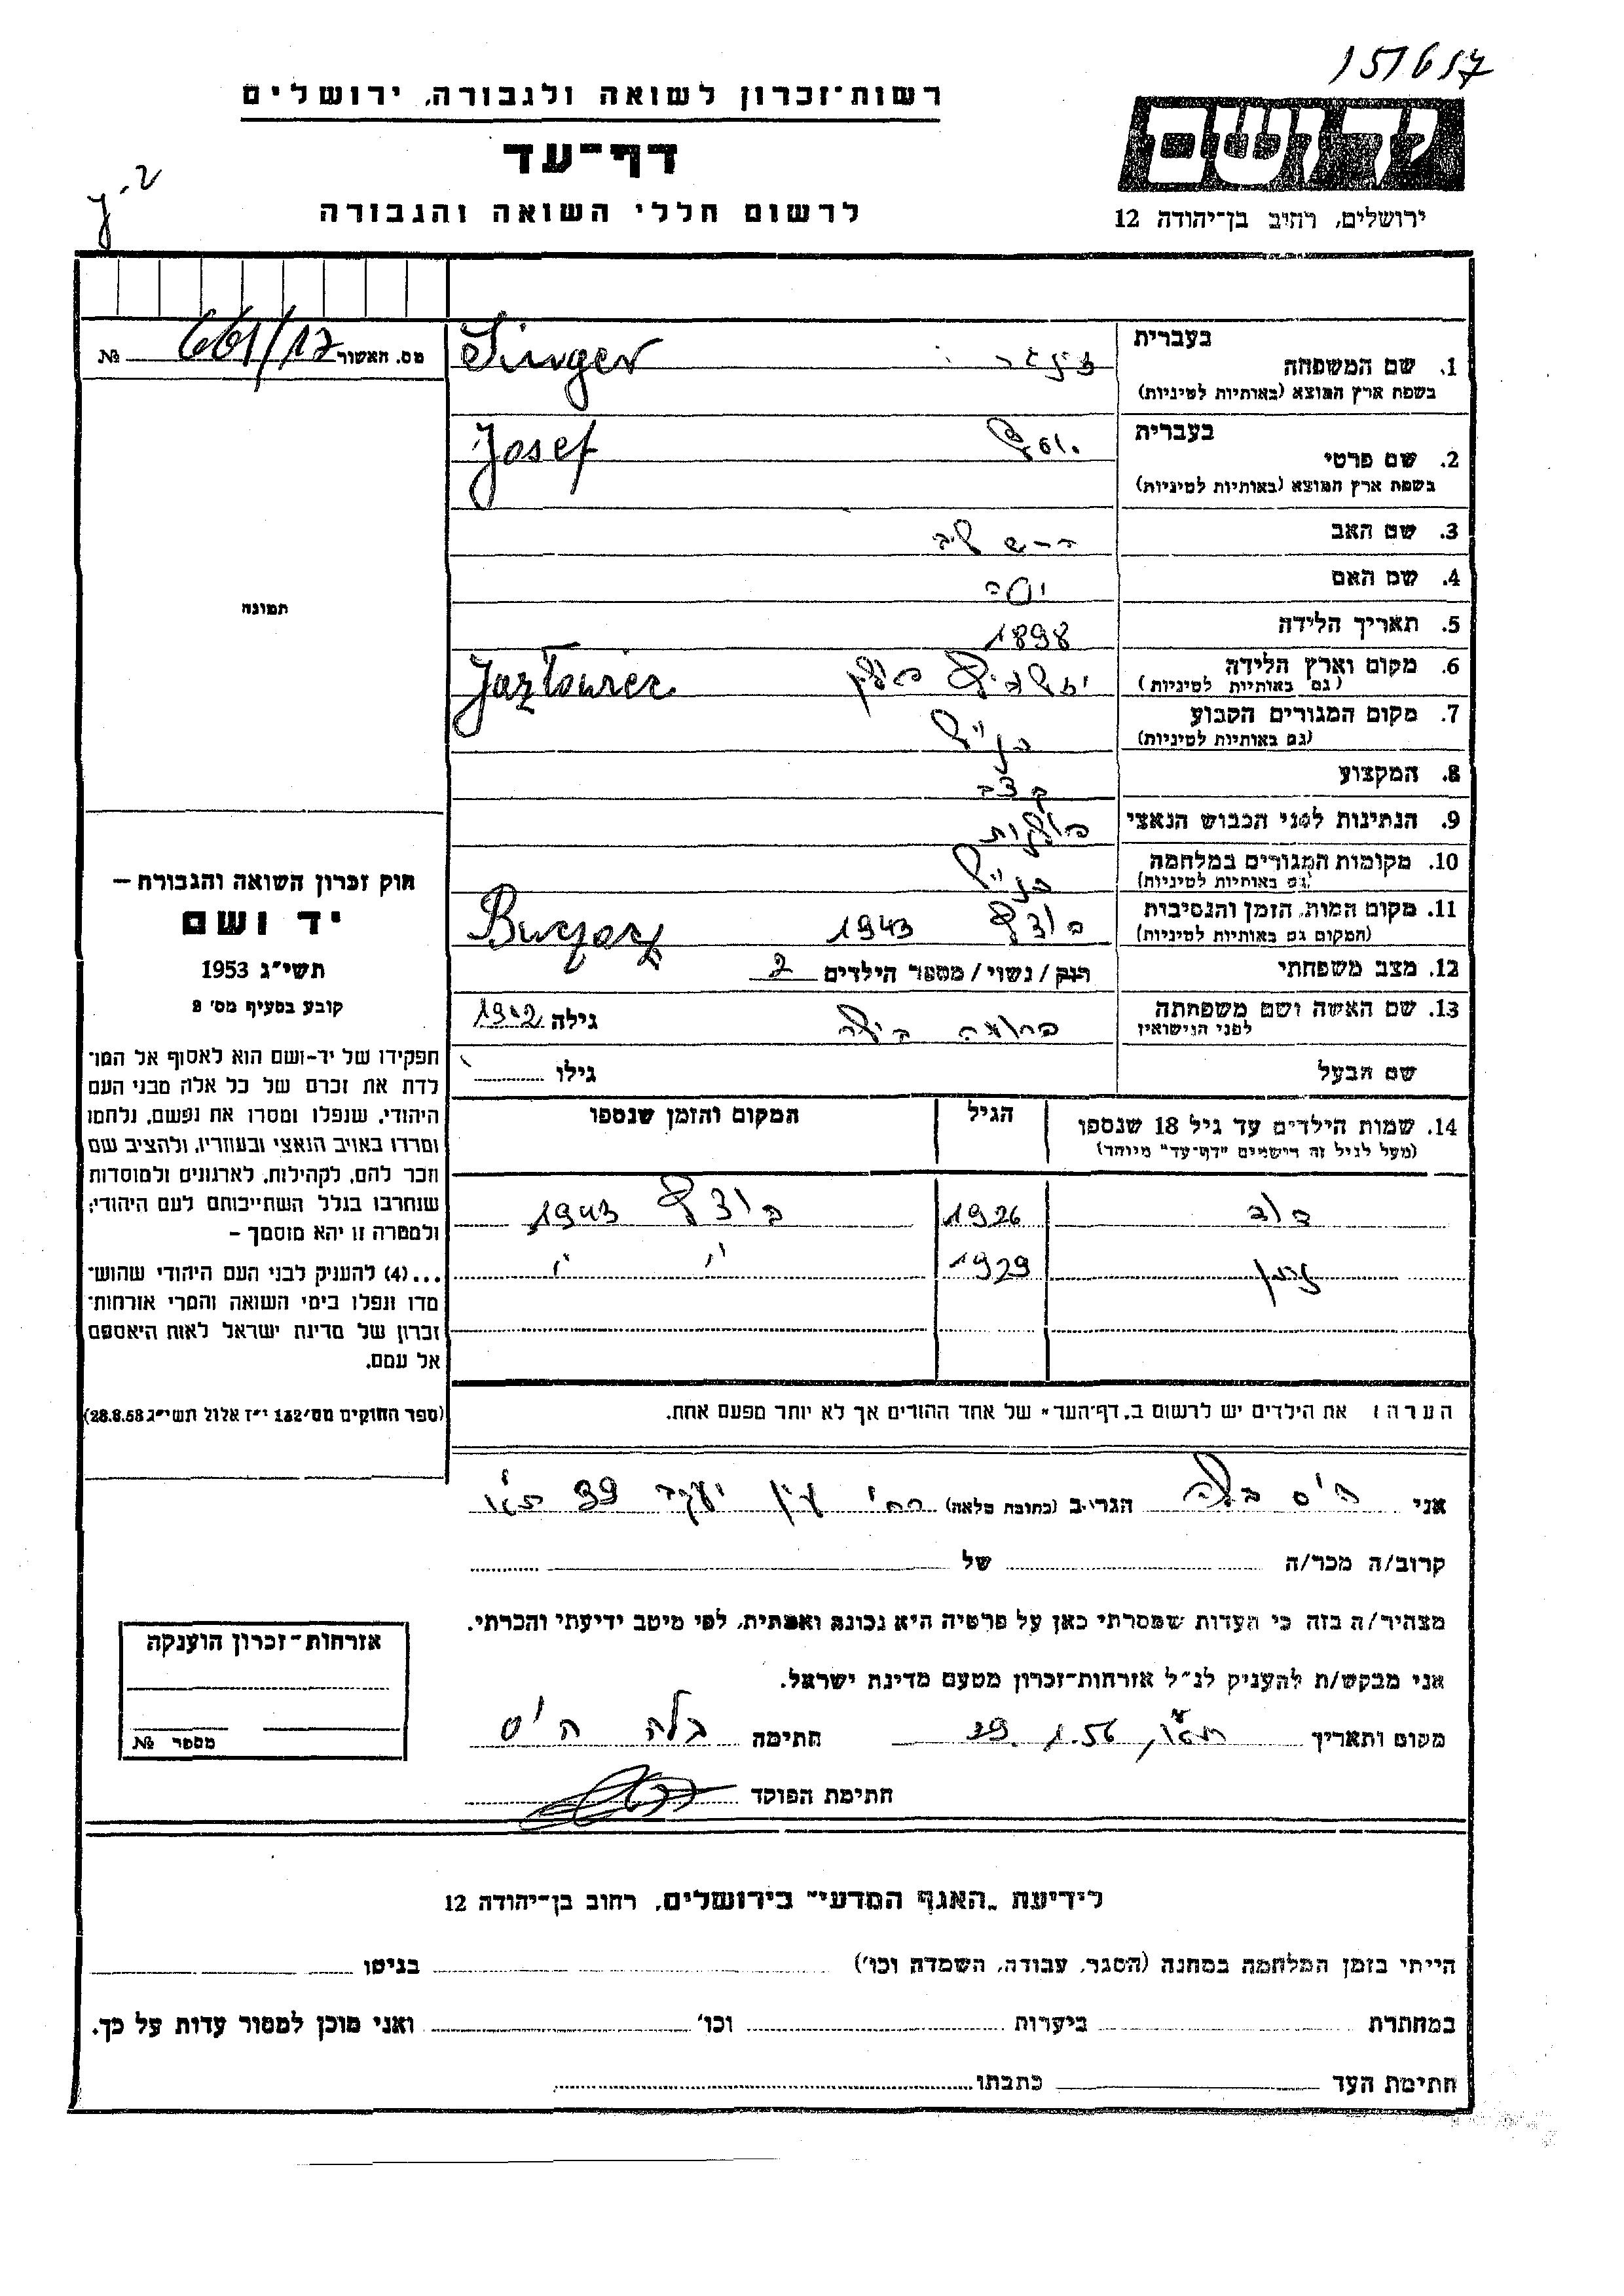 151617
רשות־זכרון לשואה ולגבורה, ירושלים
ידושם
דף־עד
לרשום חללי השואה והגבורה
ירושלים, רחוב בן־יהודה 12
מס. האשור 661/17 №
בעברית
1. שם המשפחה זינגר Singer
בשפת ארץ המוצא (באותיות לטיניות)
בעברית
2. שם פרטי יוסף Josef
בשפת ארץ המוצא (באותיות לטיניות)
3. שם האב הרש ליב
4. שם האם
5. תאריך הלידה 1898
6. מקום וארץ הלידה פולין Jazłowiec
(גם באותיות לטיניות)
7. מקום המגורים הקבוע כנ"ל
(גם באותיות לטיניות)
8. המקצוע קצב
9. הנתינות לפני הכבוש הנאצי פולנית
10. מקומות המגורים במלחמה כנ"ל
(גם באותיות לטיניות)
11. מקום המות, הזמן והנסיבות 1943
(המקום גם באותיות לטיניות)
12. מצב משפחתי רוק / נשוי / מספר הילדים 2
13. שם האשה ושם משפחתה גילה 1902
לפני הנישואין
שם הבעל גילו
תמונה
חוק זכרון השואה והגבורה —
יד ושם
תשי"ג 1953
קובע בסעיף מס' 2
תפקידו של יד-ושם הוא לאסוף אל המו־
לדת את זכרם של כל אלה מבני העם
היהודי, שנפלו ומסרו את נפשם, נלחמו
ומרדו באויב הנאצי ובעוזריו, ולהציב שם
וזכר להם, לקהילות, לארגונים ולמוסדות
שנחרבו בגלל השתייכותם לעם היהודי;
ולמטרה זו יהא מוסמך –
...(4) להעניק לבני העם היהודי שהוש־
מדו ונפלו בימי השואה והמרי אזרחות־
זכרון של מדינת ישראל לאות היאספם
אל עמם.
(ספר החוקים מס' 132 י"ז אלול תשי"ג 28.8.53)
14. שמות הילדים עד גיל 18 שנספו הגיל המקום והזמן שנספו
(מעל לגיל זה רושמים "דף־עד" מיוחד)
1926 1943
1929 " "
הערה: את הילדים יש לרשום ב"דף־העד" של אחד ההורים אך לא יותר מפעם אחת.
אני היס בלה הגר/ה ב (כתובת מלאה) רח' עין יעקב 39 ת"א
קרוב/ה מכר/ה של
מצהיר/ה בזה כי העדות שמסרתי כאן על פרטיה היא נכונה ואמתית, לפי מיטב ידיעתי והכרתי.
אני מבקש/ת להעניק לנ"ל אזרחות־זכרון מטעם מדינת ישראל.
מקום ותאריך ת"א, 1.56 חתימה בלה היס
חתימת הפוקד
אזרחות־זכרון הוענקה
מספר №
לידיעת "האגף המדעי" בירושלים, רחוב בן־יהודה 12
הייתי בזמן המלחמה במחנה (הסגר, עבודה, השמדה וכו') בגיטו
במחתרת ביערות וכו' ואני מוכן למסור עדות על כך.
חתימת העד כתבתו